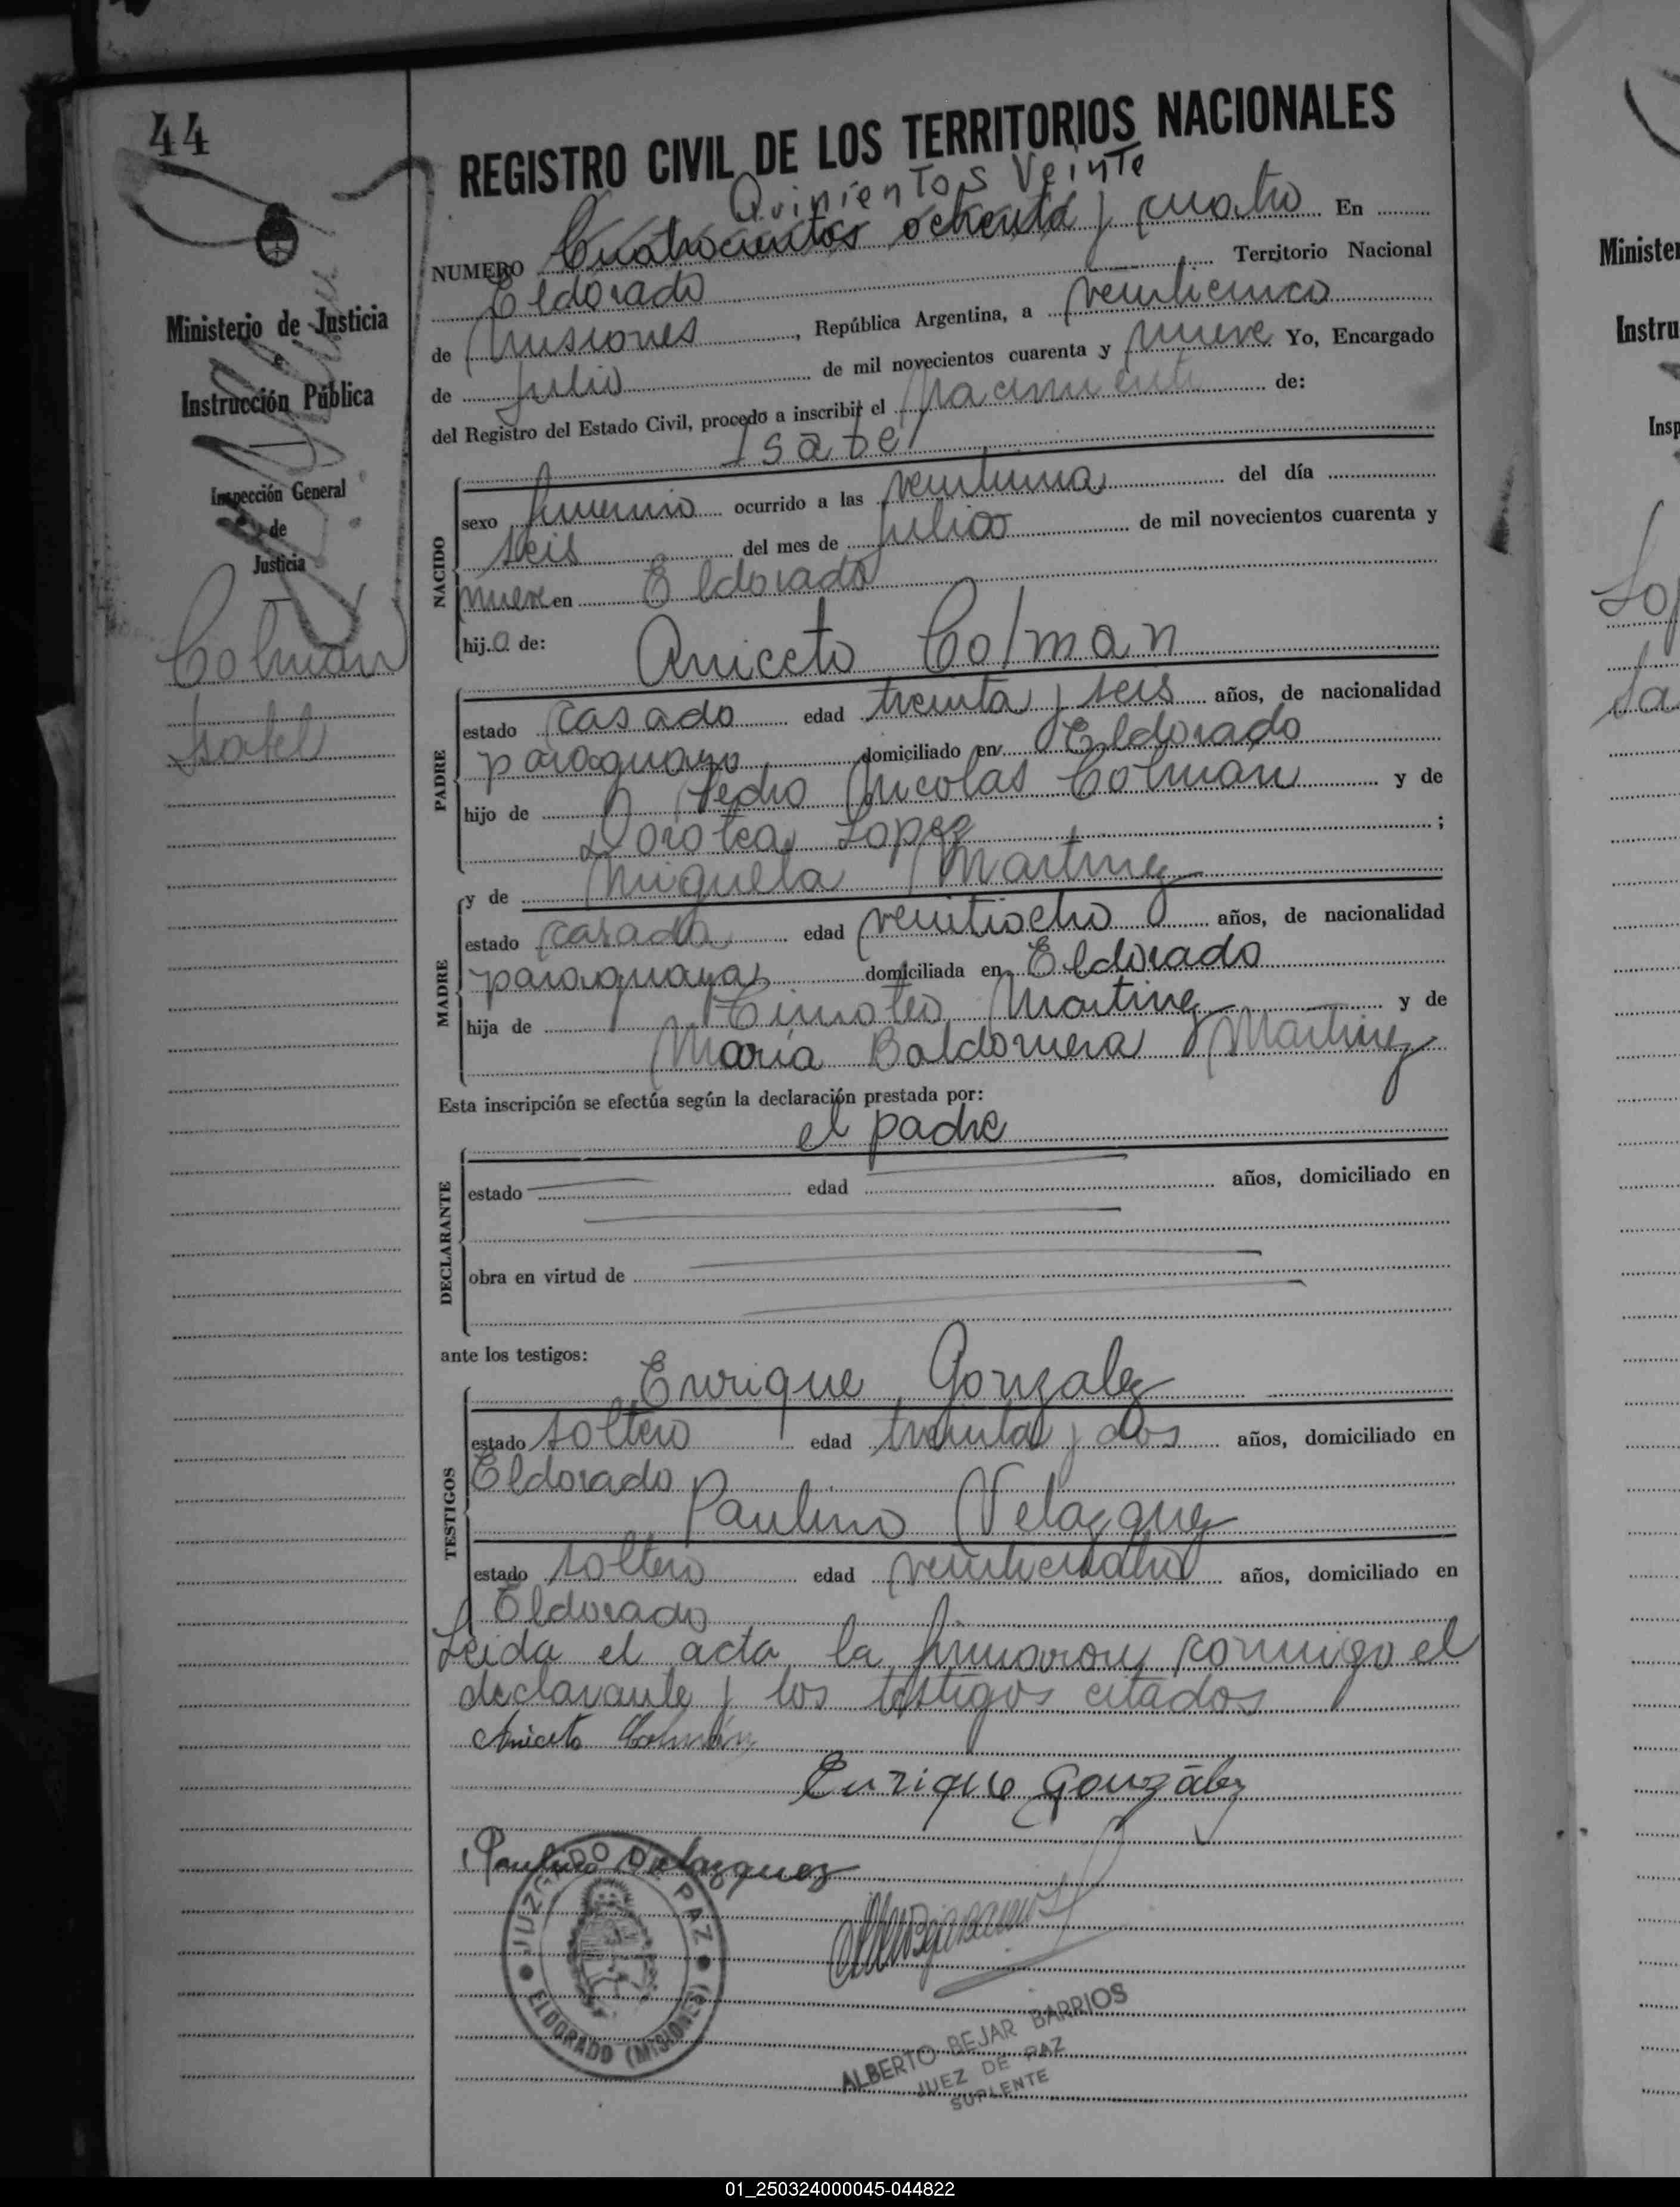 44
REGISTRO CIVIL DE LOS TERRITORIOS NACIONALES
Quinientos Veinte
NUMERO Cuatrocientos ochenta y cuatro En
Eldorado Territorio Nacional
de Misiones, República Argentina, a veinticinco
de Julio de mil novecientos cuarenta y nueve Yo, Encargado
del Registro del Estado Civil, procedo a inscribir el Nacimiento de:
Isabel
NACIDO
sexo femenino ocurrido a las veintiuna del día
seis del mes de Julio de mil novecientos cuarenta y
nueve en Eldorado
hij.a de: Aniceto Colman
PADRE
estado casado edad treinta y seis años, de nacionalidad
paraguayo domiciliado en Eldorado
hijo de Pedro Nicolas Colman y de
Dorotea Lopez ;
y de Miguela Martinez
MADRE
estado casada edad veintiocho años, de nacionalidad
paraguaya domiciliada en Eldorado
hija de Timoteo Martinez y de
María Baldomera Martinez
Esta inscripción se efectúa según la declaración prestada por:
el padre
DECLARANTE
estado edad años, domiciliado en
obra en virtud de
ante los testigos:
Enrique Gonzalez
TESTIGOS
estado soltero edad treinta y dos años, domiciliado en
Eldorado
Paulino Velazquez
estado soltero edad veinticuatro años, domiciliado en
Eldorado
Leida el acta la firmaron conmigo el
declarante y los testigos citados
Aniceto Colmán
Enrique González
Paulino Velazquez
JUZGADO DE PAZ
ELDORADO (MISIONES)
ALBERTO BEJAR BARRIOS
JUEZ DE PAZ
SUPLENTE
Ministerio de Justicia
e
Instrucción Pública
Inspección General
de
Justicia
Colman
Isabel
Minister
Instru
Insp
01_250324000045-044822